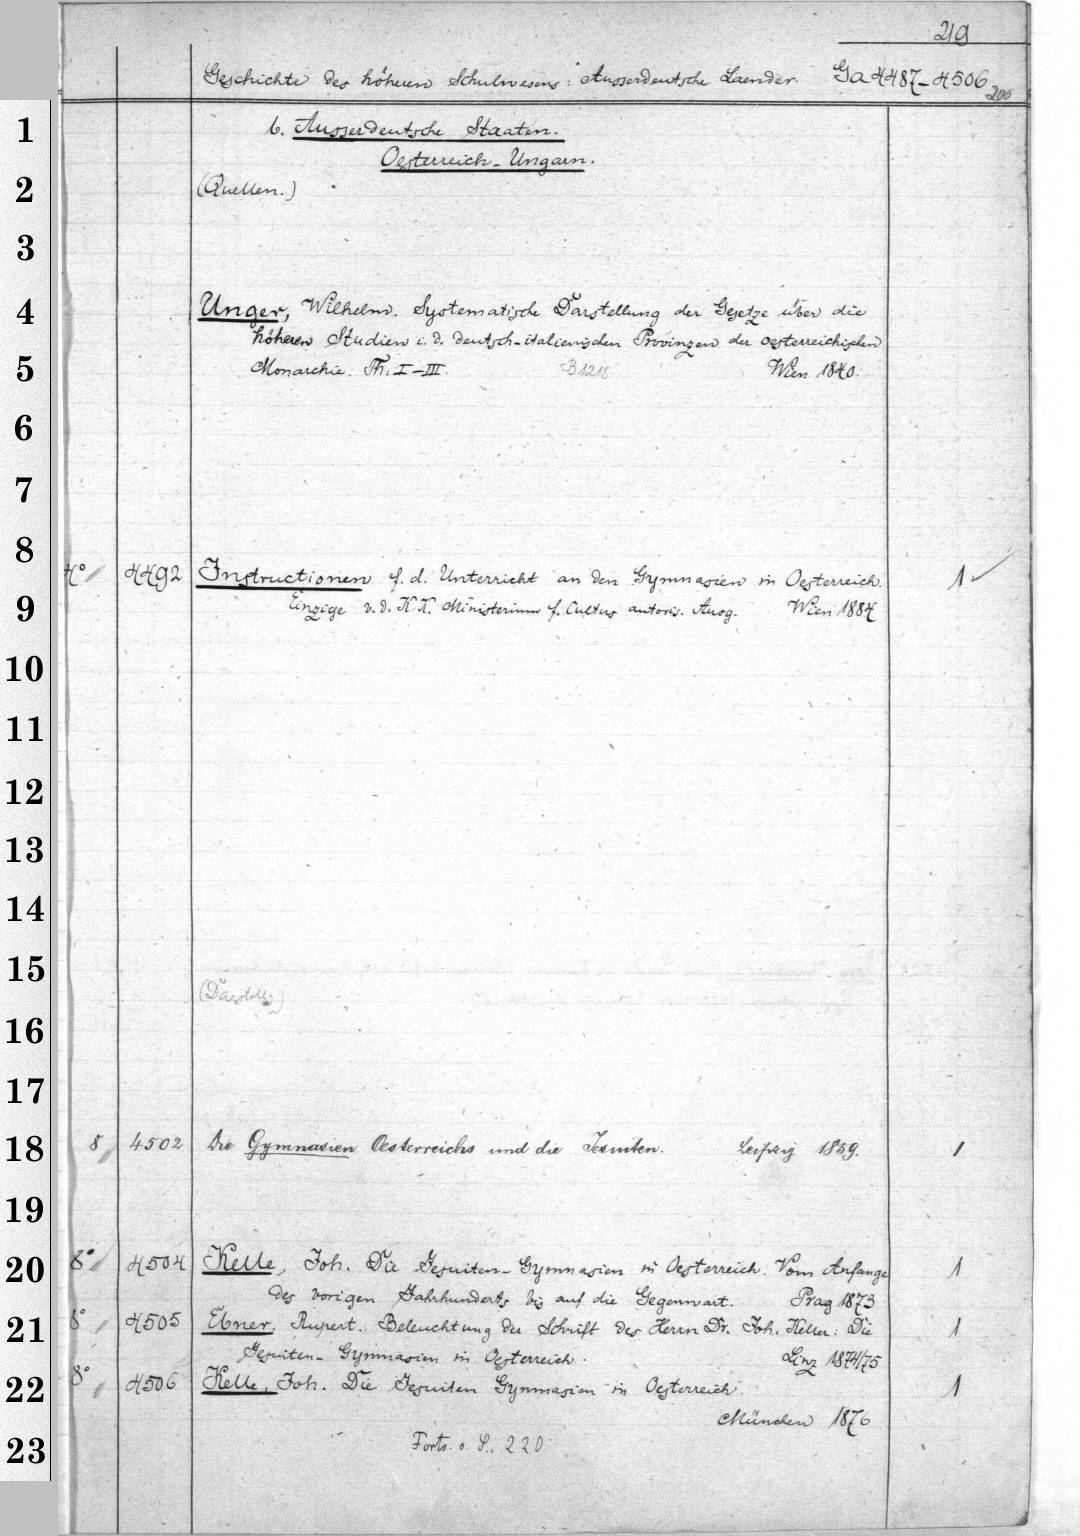 219
Geschichte des höheren Schulwesens: Ausserdeutsche Laender. Ga 4487-4506
200
1 b. Ausserdeutsche Staaten.
Oesterreich-Ungarn.
2 (Quellen.)
3
4 Unger, Wilhelm. Systematische Darstellung der Gesetze über die
höheren Studien i. d. deutsch-italienischen Provinzen der oesterreichischen
5 Monarchie. Th. I-III. B1218 Wien 1840.
6
7
8
4° 4492 Instructionen f. d. Unterricht an den Gymnasien in Oesterreich. 1 ✓
9 Einzige v. d. K. K. Ministerium f. Cultus autoris. Ausg. Wien 1884
10
11
12
13
14
15
(Darstellg)
16
17
18 8 4502 Die Gymnasien Oesterreichs und die Jesuiten. Leipzig 1859. 1
19
20 8° 4504 Kelle, Joh. Die Jesuiten-Gymnasien in Oesterreich. Vom Anfange 1
des vorigen Jahrhunderts bis auf die Gegenwart. Prag 1873
21 8° 4505 Ebner, Rupert. Beleuchtung der Schrift des Herrn Dr. Joh. Keller: Die 1
Jesuiten-Gymnasien in Oesterreich. Linz 1874/75
22 8° 4506 Kelle, Joh. Die Jesuiten Gymnasien in Oesterreich. 1
München 1876
23 Forts. s. S. 220